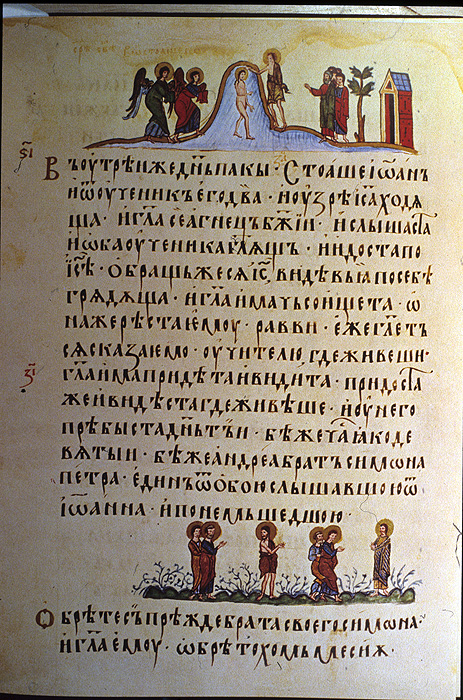 Въоутрѣижеднь҃пакы · Стоꙗшеіѡ҃анъ
иѿоученикъегодва · иоузрѣіс҃аходѧ
ща · игл҃асеагнецъбж҃іи · ислышаста
иѡбаоученика
іс҃ѣ · обращьжесѧіс҃ · видѣвыꙗпосебѣ
грѧдѧща · игл҃аимачьсоищета · ѡ
нажерѣстаемоу · равви · ежегл҃етъ
сѧсказаемо · оучителю · гдеживеши ·
гл҃аимапридѣтаивидита · придоста
жеивидѣстагдеживѣше · иоунего
прѣбыстаднь҃тъи · бѣжечаⷭ꙯ꙗкоде
вѧтыи · бѣжеандреабратъсимѡна
петра · единъѿобоюслышавшоюѿ
іѡанна · ипонемьшедшою ·
Обрѣтесьпрѣждебратасвоегосимѡна ·
игл҃аемоу · ѡбрѣтохомьмесиѫ ·